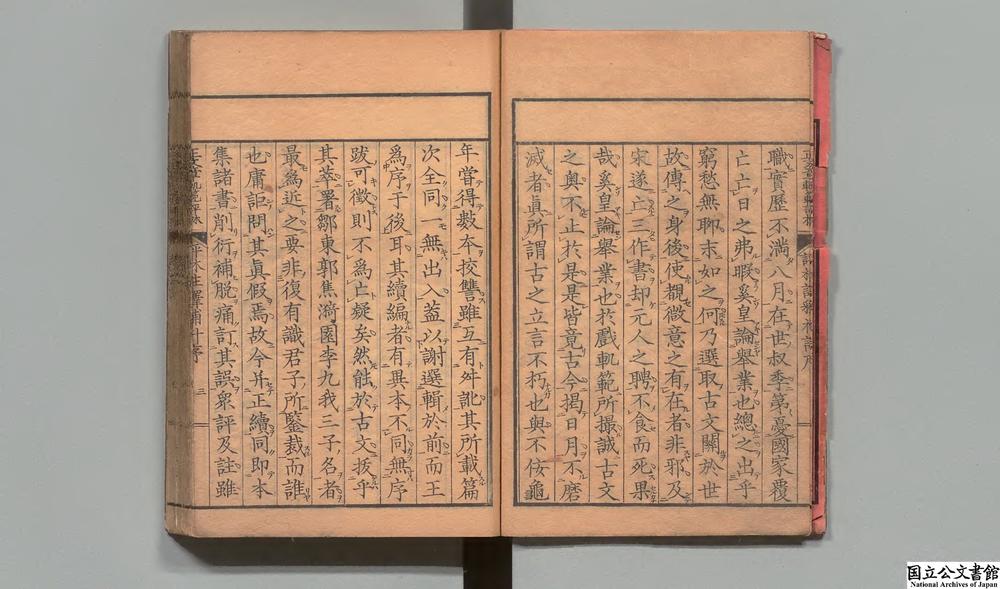 職實歷不滿八月在世叔季第憂國家覆
亡亡日之弗暇奚皇論舉業也總之出乎
窮愁無聊末如之何乃選取古文關於世
故傳之身後使覩微意之有在者非邪及
宋遂亡三作書却元人之聘不食而死果
哉奚皇論舉業也於戲軌範所撮誠古文
之奥不止於是是皆竟古今揭日月不磨
滅者眞所謂古之立言不朽也與不佞龜
年嘗得數本挍讐雖互有舛訛其所載篇
次全同一無出入葢以謝選輯於前而王
爲序于後耳其續編者有異本不同無序
跋可徵則不爲亡疑矣然能於古文拔乎
其萃署鄒東郭焦漪園李九我三子名者
最爲近之要非復有識君子所鑒裁而誰
也庸詎問其眞假焉故今并正續同即本
集諸書削衍補脫痛訂其誤衆評及註雖
國立公文書館
National Archives of Japan